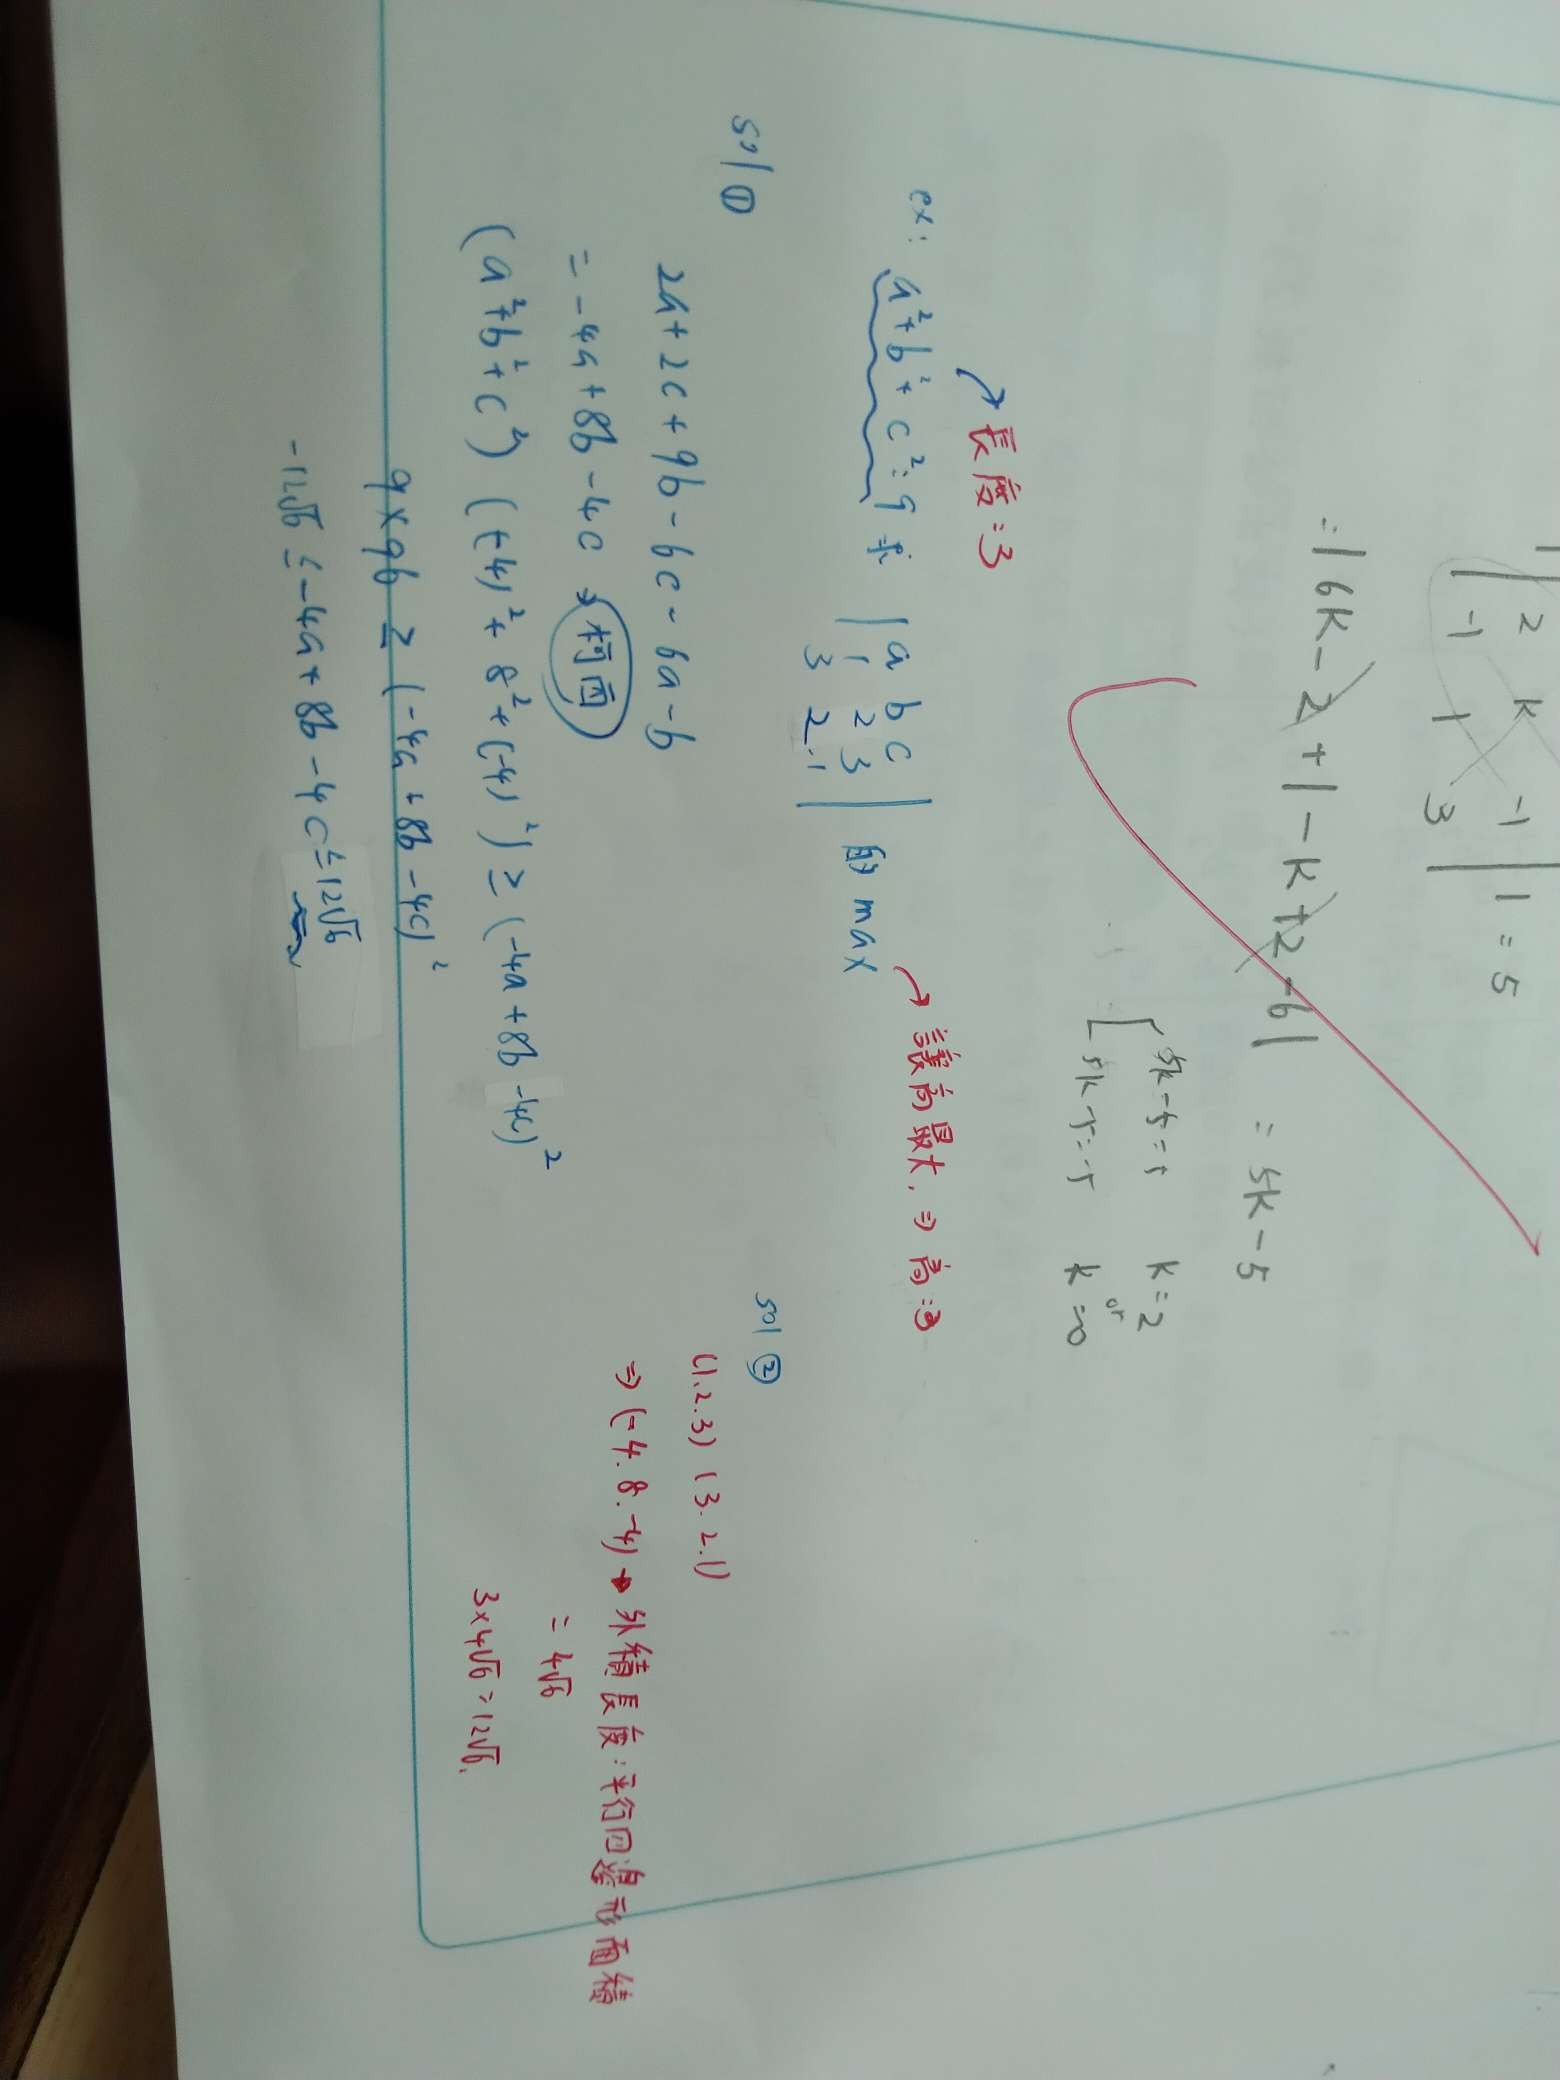 | 2 k -1 | | = 5
-1 1 3
= | 6k - 2 + 1 - k + 2 - 6 | = 5k - 5
5k - 5 = 5 k = 2
or
5k - 5 = -5 k = 0
→ 長度 = 3
ex: a² + b² + c² = 9 求 | a b c
1 2 3
3 2 1 | 的 max → 讓高最大, ⇒ 高 = 3
sol ①
2a + 2c + 9b - 6c - 6a - b
= -4a + 8b - 4c → 柯西
(a² + b² + c²) ((-4)² + 8² + (-4)²) ≥ (-4a + 8b - 4c)²
9 × 96 ≥ (-4a + 8b - 4c)²
-12√6 ≤ -4a + 8b - 4c ≤ 12√6
sol ②
(1.2.3) (3.2.1)
⇒ (-4.8.-4) → 外積長度 = 平行四邊形面積
= 4√6
3 × 4√6 = 12√6.